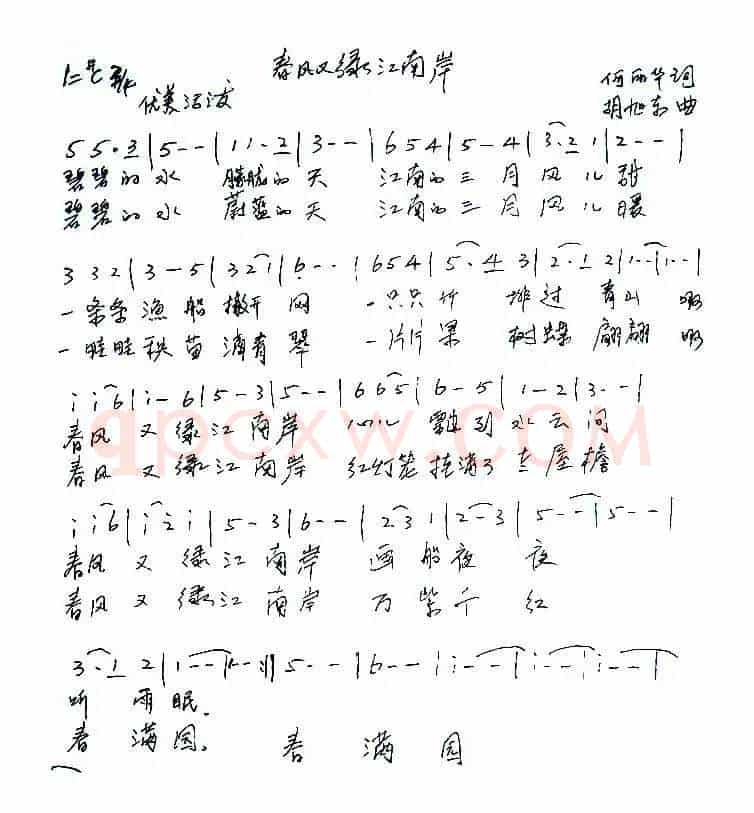 春风又绿江南岸
何丽华词
优美活泼
胡旭东曲
5 5·3|5--|1 1·2|3--|6 5 4|5-4|3·2 1|2--|
碧碧的水 朦胧的天 江南的三月风儿甜
碧碧的水 蔚蓝的天 江南的三月风儿暖
3 3 2|3-5|3 2 1|6--|6 5 4|5·4 3|2·1 2|1--|1--|
一条条渔船撒开网 一只只竹排过青山
一畦畦秧苗滴青翠 一片片果树蝶翩翩
i i 6|i-6|5-3|5--|6 6 5|6-5|1-2|3--|
春风又绿江南岸 心儿飘到水云间
春风又绿江南岸 红灯笼挂满了 屋檐
i i 6|i 2 i|5-3|6--|2 3 1|2-3|5--|5--|
春风又绿江南岸 画船夜夜
春风又绿江南岸 万紫千红
3·1 2|1--|1--:||5--|6--|i--|i--|i--|
听雨眠.
春满园. 春满园
qpcxw.COM